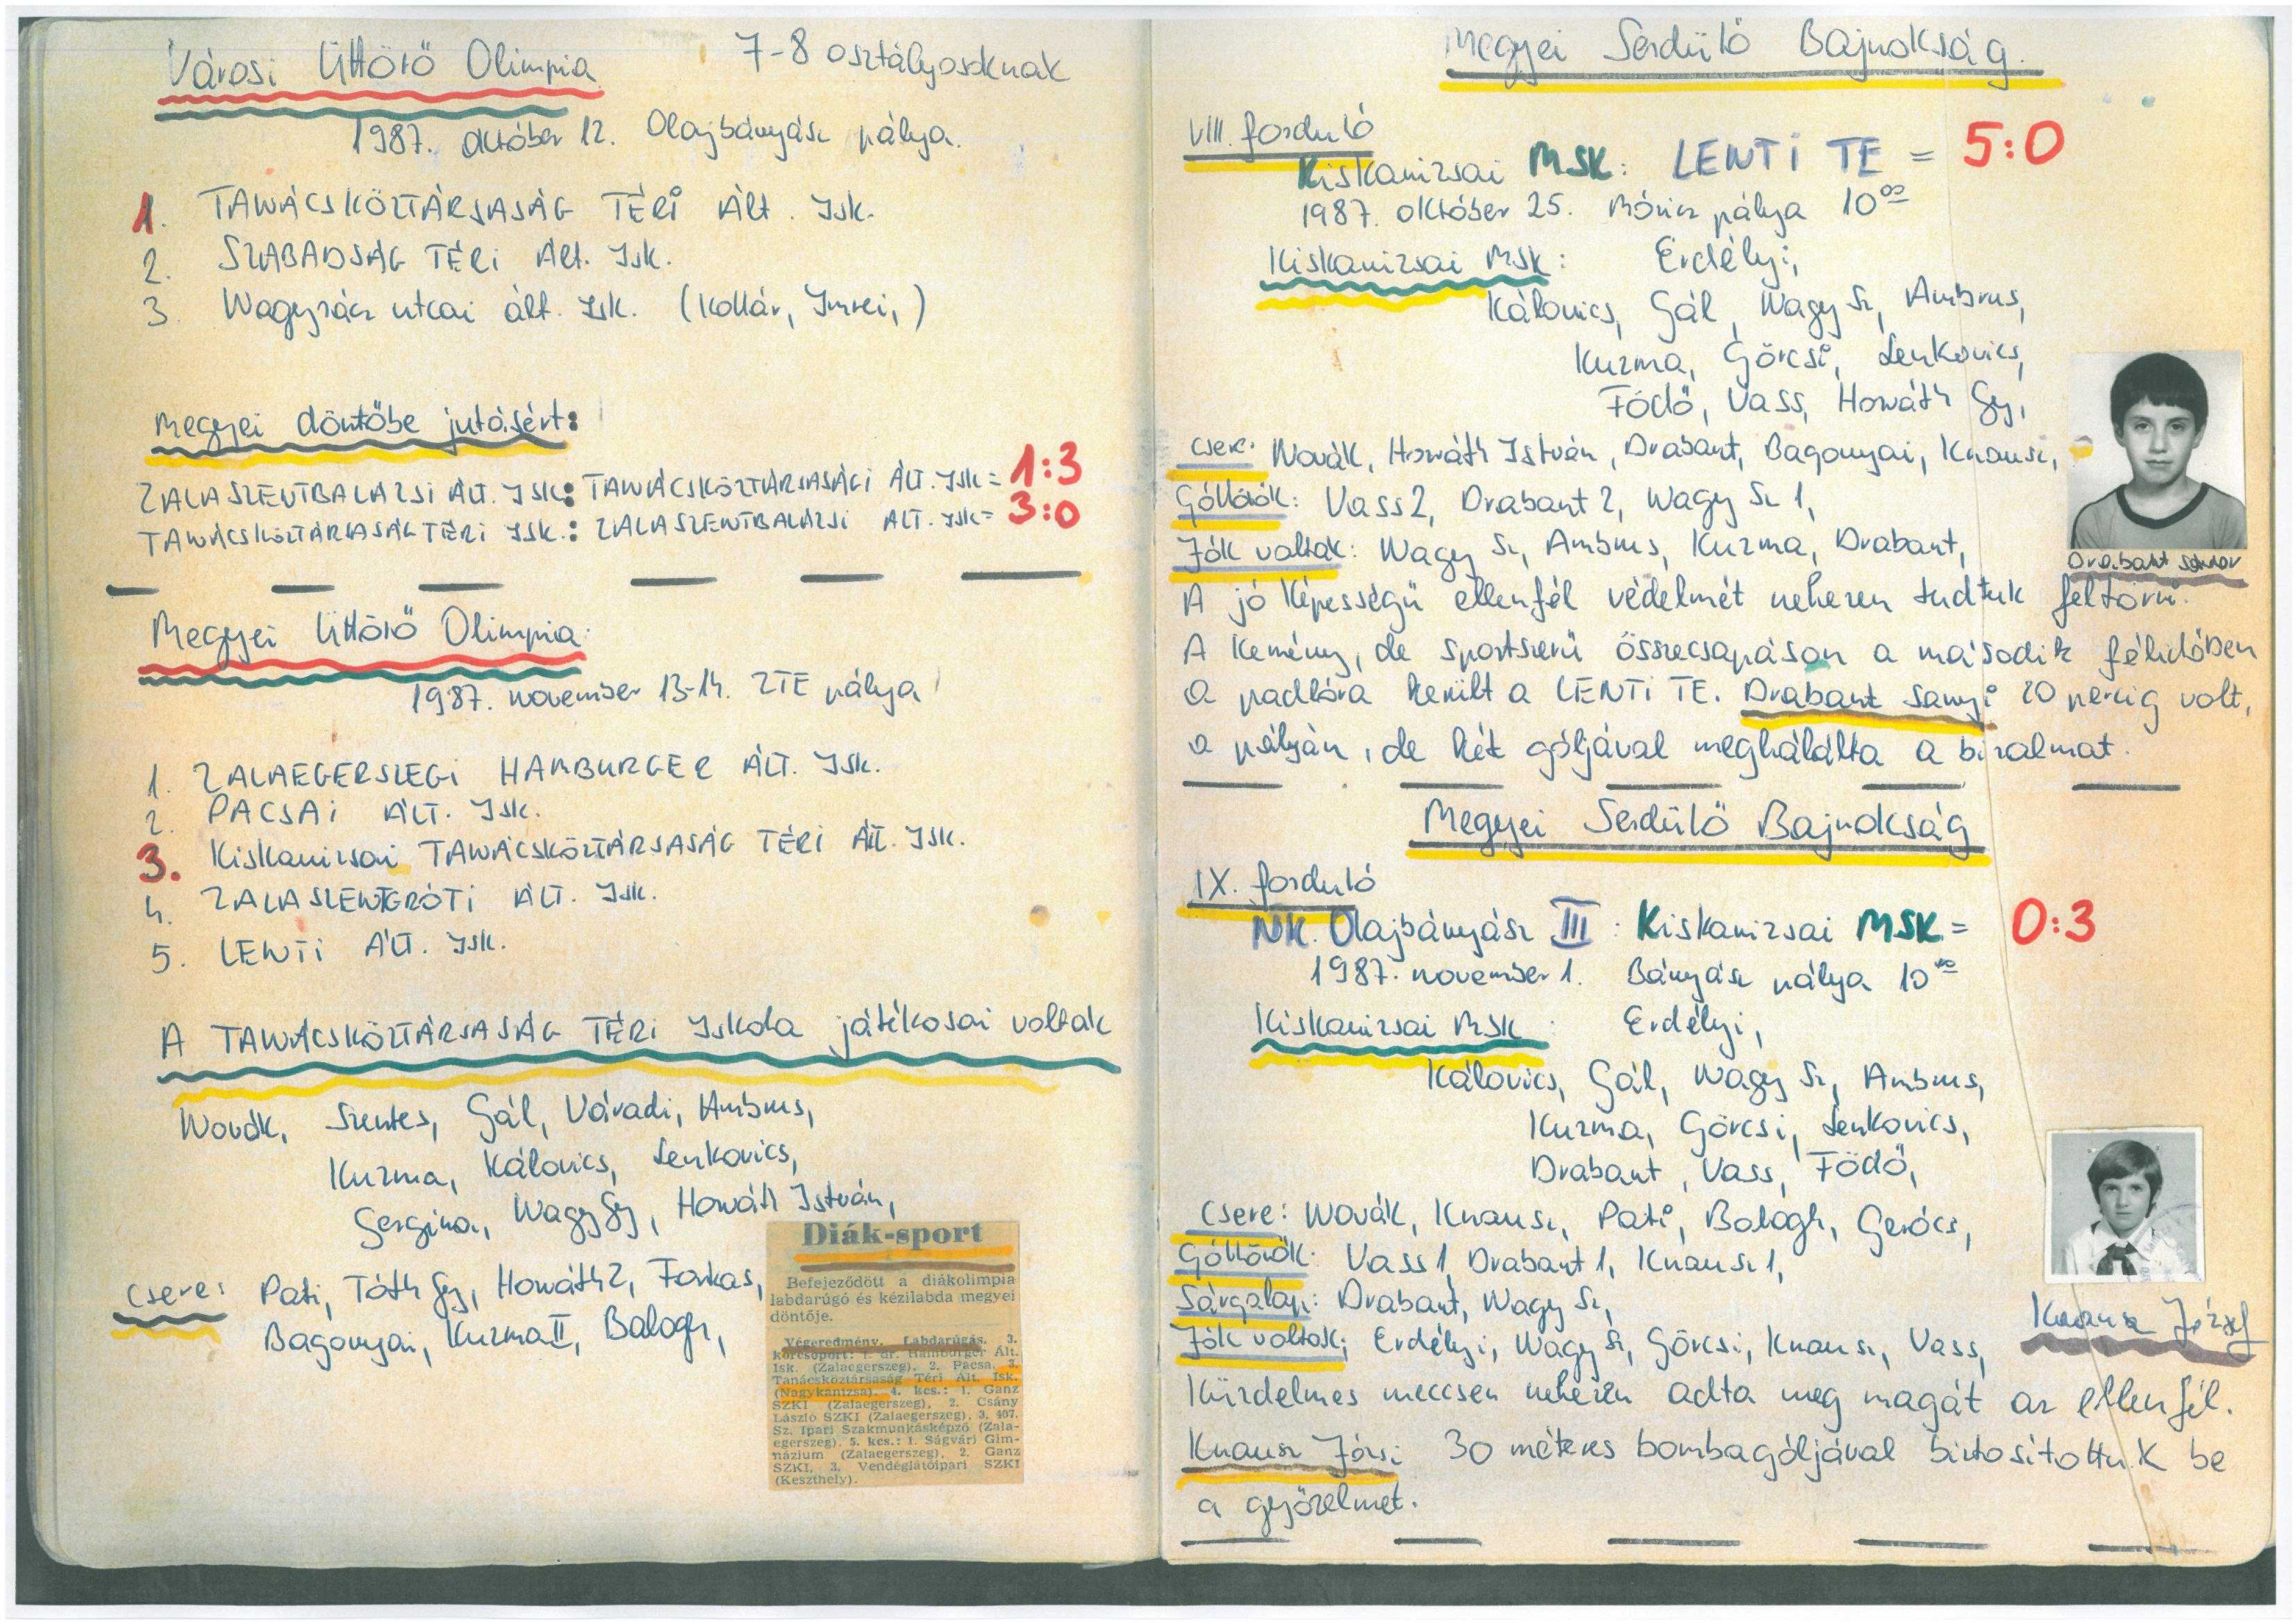 Városi Úttörő Olimpia 7-8 osztályosoknak
1987. október 12. Olajbányász pálya.
1. TANÁCSKÖZTÁRSASÁG TÉRI Ált. Isk.
2. SZABADSÁG TÉRI Ált. Isk.
3. Nagyrácz utcai ált. Isk. (Kollár, Imrei,)
Megyei döntőbe jutásért:
ZALASZENTBALÁZSI ÁLT. ISK: TANÁCSKÖZTÁRSASÁGI ÁLT. ISK = 1:3
TANÁCSKÖZTÁRSASÁG TÉRI ISK.: ZALASZENTBALÁZSI ALT. ISK = 3:0
Megyei Úttörő Olimpia:
1987. november 13-14. ZTE pálya
1. ZALAEGERSZEGI HAMBURGER ÁLT. ISK.
2. PACSAI ÁLT. ISK.
3. Kiskanizsai TANÁCSKÖZTÁRSASÁG TÉRI Ált. ISK.
4. ZALASZENTGRÓTI ÁLT. ISK.
5. LENTI ÁLT. ISK.
A TANÁCSKÖZTÁRSASÁG TÉRI Iskola játékosai voltak
Novák, Szentes, Gál, Váradi, Ambrus,
Kuzma, Kálovics, Lenkovics,
Gergina, Nagy Gy, Horváth István,
Csere: Pati, Tóth Gy, Horváth Z, Farkas,
Bagonyai, Kuzma II, Balogh,
Diák-sport
Befejeződött a diákolimpia
labdarúgó és kézilabda megyei
döntője.
Végeredmény. Labdarúgás. 3.
korcsoport: 1. dr. Hamburger Ált.
Isk. (Zalaegerszeg), 2. Pacsa, 3.
Tanácsköztársaság Téri Ált. Isk.
(Nagykanizsa). 4. kcs.: 1. Ganz
SZKI (Zalaegerszeg), 2. Csány
László SZKI (Zalaegerszeg), 3. 407.
Sz. Ipari Szakmunkásképző (Zala-
egerszeg). 5. kcs.: 1. Ságvári Gim-
názium (Zalaegerszeg), 2. Ganz
SZKI, 3. Vendéglátóipari SZKI
(Keszthely).
Megyei Serdülő Bajnokság.
VIII. forduló
Kiskanizsai MSK: LENTI TE = 5:0
1987. október 25. Móricz pálya 10⁰⁰
Kiskanizsai MSK: Erdélyi,
Kálovics, Gál, Nagy Sz, Ambrus,
Kuzma, Görcsi, Lenkovics,
Födő, Vass, Horváth Gy,
Csere: Novák, Horváth István, Drabant, Bagonyai, Knausz,
Góllövők: Vass 2, Drabant 2, Nagy Sz 1,
Jók voltak: Nagy Sz, Ambrus, Kuzma, Drabant,
Drabant Sándor
A jó képességű ellenfél védelmét nehezen tudtuk feltörni.
A kemény, de sportszerű összecsapáson a második félidőben
a padlóra került a LENTI TE. Drabant Sanyi 20 percig volt,
a pályán, de két góljával meghálálta a bizalmat.
Megyei Serdülő Bajnokság
IX. forduló
NK. Olajbányász III : Kiskanizsai MSK = 0:3
1987. november 1. Bányász pálya 10⁰⁰
Kiskanizsai MSK : Erdélyi,
Kálovics, Gál, Nagy Sz, Ambrus,
Kuzma, Görcsi, Lenkovics,
Drabant, Vass, Födő,
Csere: Novák, Knausz, Pati, Balogh, Gerócs,
Góllövők: Vass 1, Drabant 1, Knausz 1,
Sárgalap: Drabant, Nagy Sz,
Jók voltak: Erdélyi, Nagy Sz, Görcsi, Knausz, Vass,
Knausz József
Küzdelmes meccsen nehezen adta meg magát az ellenfél.
Knausz Józsi 30 méteres bombagóljával biztosítottuk be
a győzelmet.